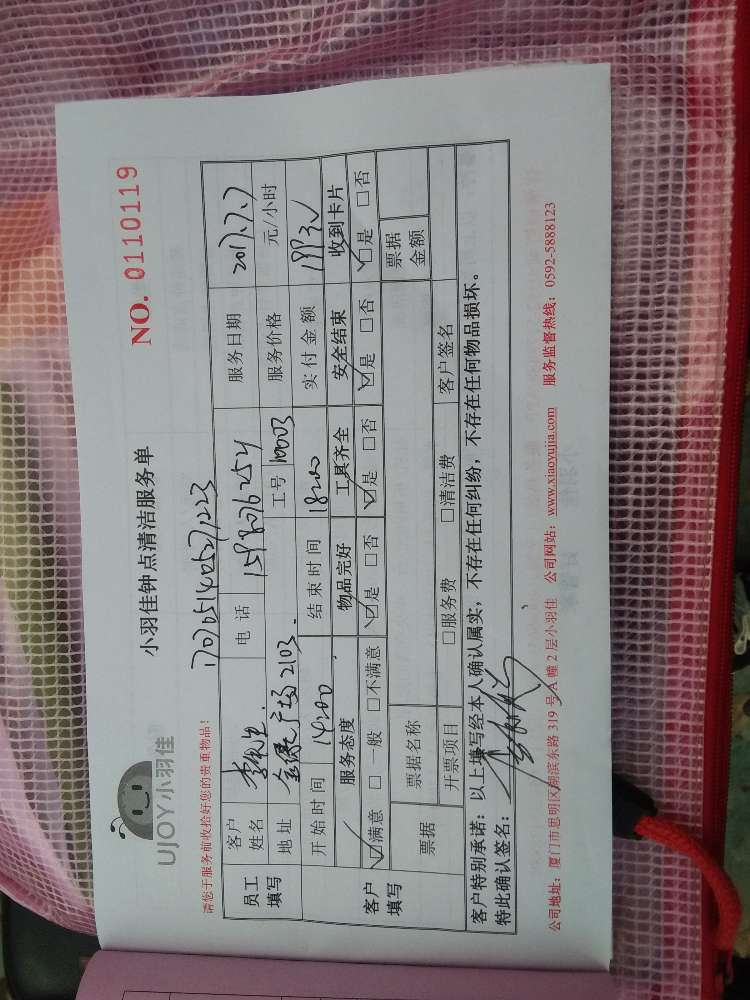 UJOY小羽佳
小羽佳钟点清洁服务单
NO. 0110119
请您于服务前收拾好您的贵重物品!
员工填写
客户姓名 李先生 电话 服务日期 2017.7.7
地址 广场2103 工号 10003 服务价格 元/小时
开始时间 14:00 结束时间 18:00 实付金额
客户填写
服务态度 物品完好 工具齐全 安全结束 收到卡片
☑满意 □一般 □不满意 ☑是 □否 ☑是 □否 ☑是 □否 ☑是 □否
票据 票据名称 票据金额
开票项目 □服务费 □清洁费 客户签名
客户特别承诺:以上填写经本人确认属实,不存在任何纠纷,不存在任何物品损坏。
特此确认签名:
公司地址:厦门市思明区湖滨东路319号A幢2层小羽佳 公司网站:www.xiaoyujia.com 服务监督热线:0592-5888123